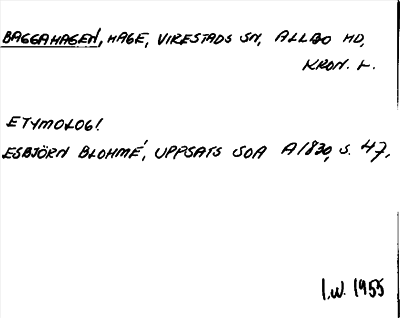 BAGGAHAGEN, HAGE, VIRESTADS SN, ALLBO HD,
KRON. L.
ETYMOLOGI
ESBJÖRN BLOHMÉ, UPPSATS SOA A1830, S. 47.
I.W. 1955